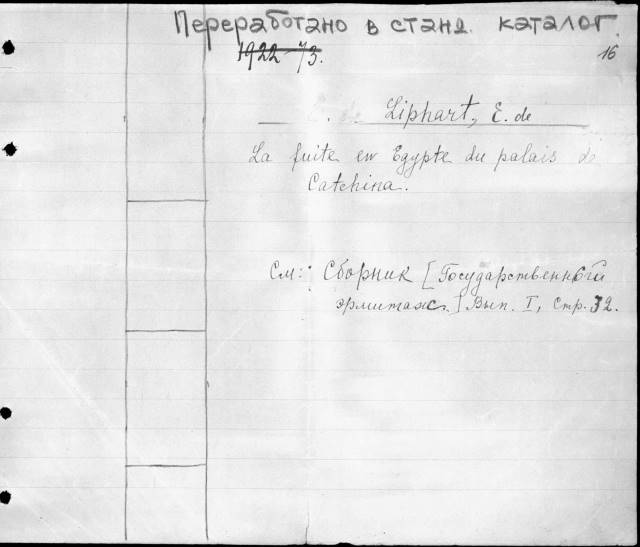 Переработано в станд. каталог.
1922-73.
16
Liphart, E. de
La fuite en Egypte du palais de
Catchina.
См: Сборник [Государственный
эрмитаж.] Вып. I, Стр. 32.